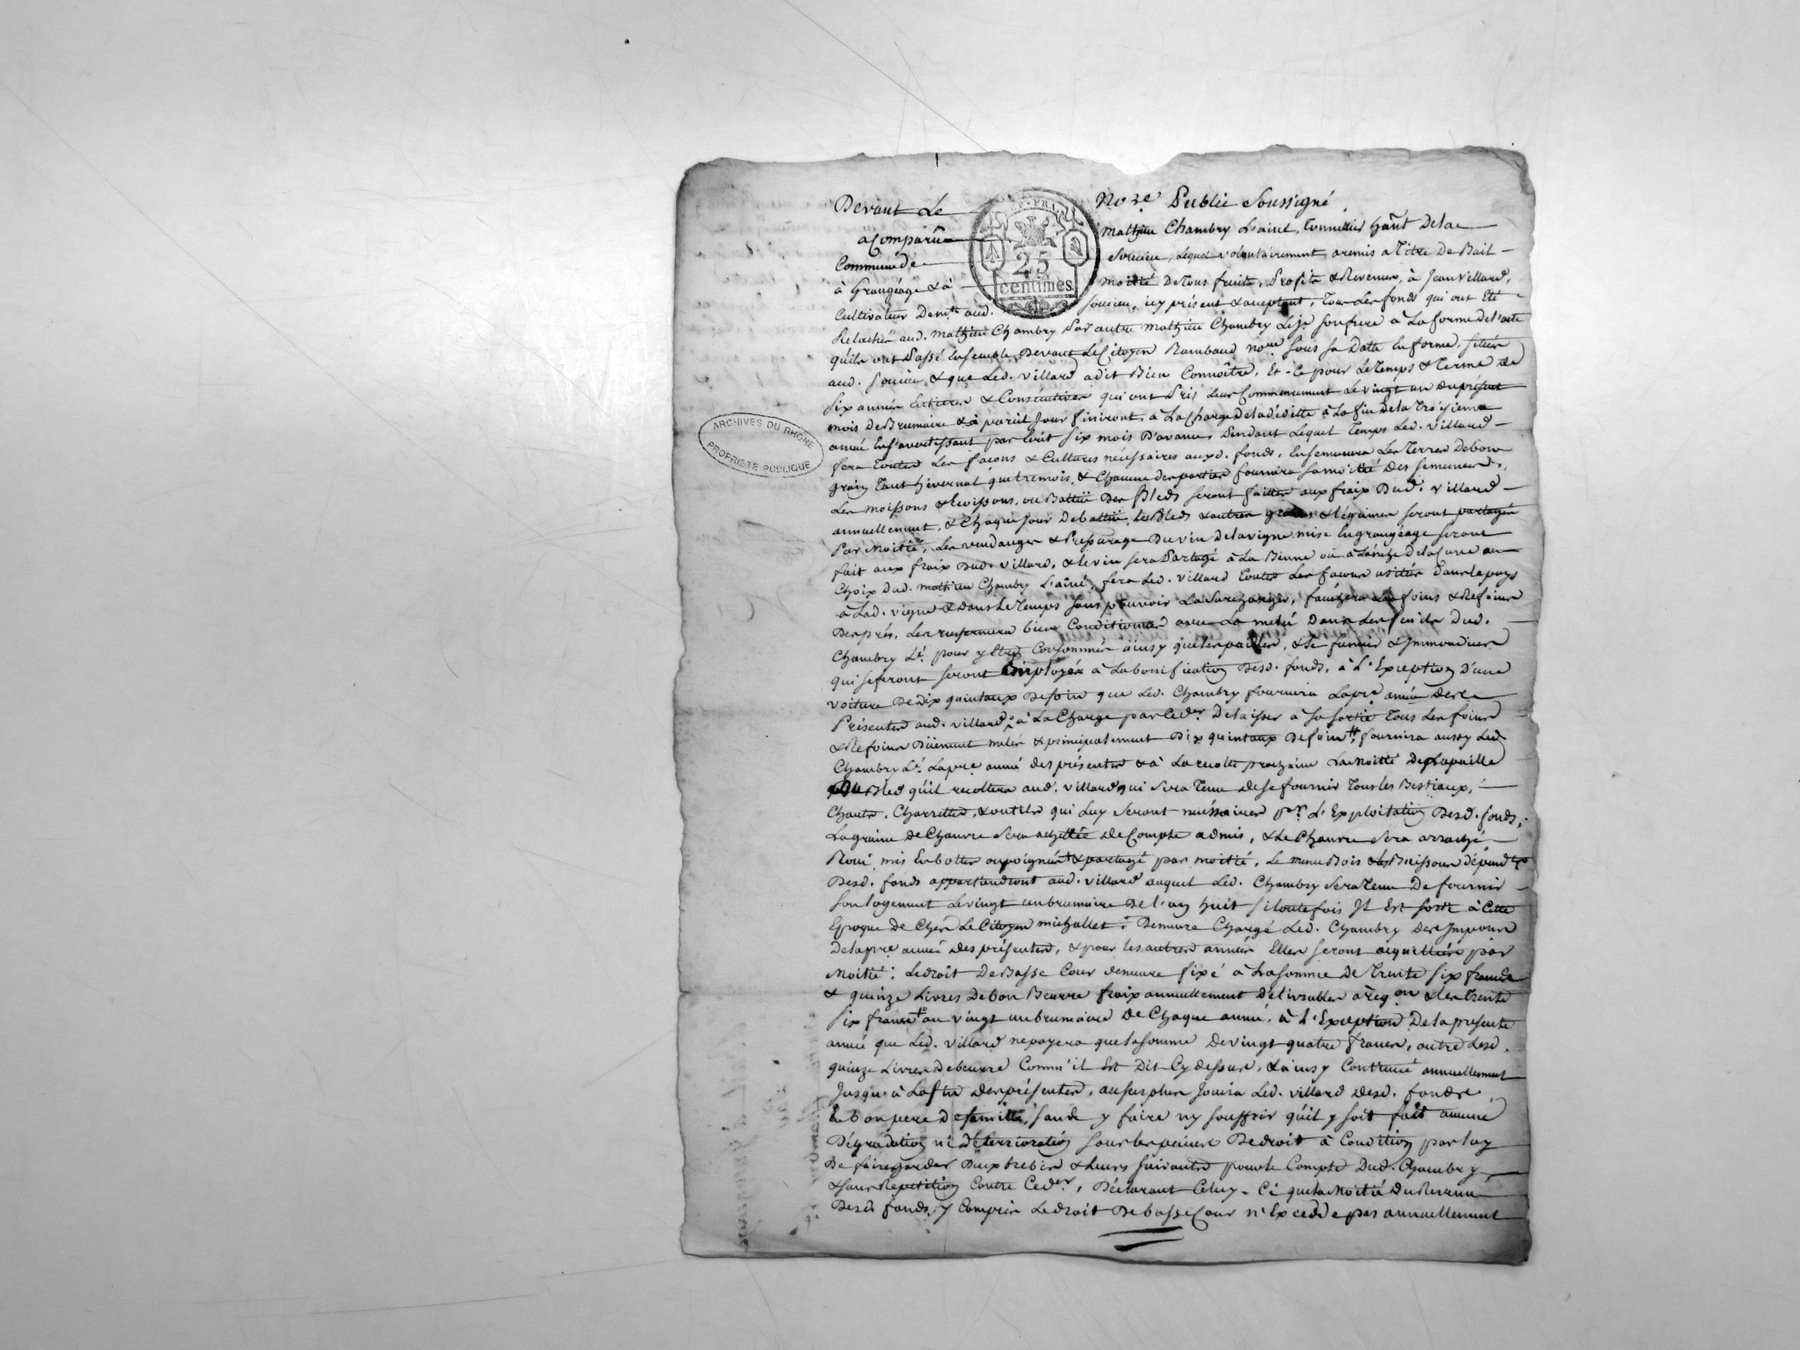 Devant Le No.re Public Soussigné
a Comparû mathieu Chambry L'ainé, Dela
Commune de Soucieu, Lequel volontairement, a remis a Titre de Bail
à Grangéage & à moitié De Tous fruits, Profits & Revenus, à Jean Villard,
Cultivateur Dem.t aud. Soucieu, icy présent & acceptant, Tous Les fonds qui ont Eté
Relachés aud. Mathieu Chambry Par autre Mathieu Chambry à La forme de l'acte
qu'ils ont Passé Ensemble Devant Le Citoyen Rambaud no.re sous sa Datte En forme, situés
aud. Soucieu, & que Led. Villard a dit Bien Connoître, Et Ce pour Le Temps & Terme de
Six années Entieres & Consecutives qui ont Pris Leur Commencement Le vingt un du présent
mois de Brumaire & à pareil Jour finiront, à La Charge De la dédite à La fin de la Troisieme
année En s'avertissant par Ecrit six mois D'avance, Pendant Lequel Temps Led. Villard
fera Toutes Les façons & Cultures nécessaires auxd. fonds, Ensemencera Les Terres De bon
grain Tant hivernal que tremois, & Chacune des parties fournira sa moitié Des semences,
Les moissons ou Battue Des Bleds seront faittes aux fraix Dud. Villard
annuellement, & Chaque Jour De battue, Les Bleds & autres grains & Légumes seront partagés
Par Moitié; Les vendanges & Pressurage Du vin de la vigne mise En grangéage seront
fait aux fraix Dud. Villard, & le vin sera Partagé à La Benne ou à L'anche De la Cuve au
Choix Dud. Mathieu Chambry L'aîné, fera Led. Villard Toutes Les façons usitées Dans Le pays
à Lad. vigne & Dans Le Temps sans pouvoir La Surcharger, fauchera Les foins & Refoins
Des prés, Les renfermera bien Conditionnés Dans Les fenils Dud.
Chambry L'é. pour y Etre Consommés ainsy que Les pailles, & Le fumier & Immondices
qui se feront seront Employés à La bonification Desd. fonds, à l'Exception D'une
voiture De Dix quintaux De foin que Led. Chambry fournira La p.re année des
Présentes aud. Villard, à La Charge par Ce d.er De laisser à sa sortie Tous Les foins
& Refoins Düement & principalement Dix quintaux De foin, fournira aussy Led.
Chambry L'é. La p.re année des présentes & à La recolte prochaine La Moitié De La paille
Du Bled qu'il recoltera aud. Villard qui sera Tenu de se fournir Tous Les Bestiaux,
Chars, Charrettes, & outils qui Luy Seront nécessaires p.r L'Exploitation Desd. fonds,
La graine de Chanvre sera achettée de Compte à demis, & Le Chanvre sera arraché
Roui, mis En bottes & partagé par moitié, Le menu Bois & Les Buissons dépend.ts
Desd. fonds appartiendront aud. Villard auquel Led. Chambry Sera Tenu De fournir
son Logement Le vingt un brumaire De L'an huit si toutefois Il Est sorti à Cette
Epoque de Chés Le Citoyen michallet; Demeure Chargé Led. Chambry des Impours
De la p.re année des présentes, & pour les autres années Elles seront acquittées par
Moitié; Le droit De Basse Cour demeure fixé à La somme de Trente six francs
& quinze Livres De bon Beurre fraix annuellement Délivrables à req.on & Les Trente
six francs au vingt un brumaire de Chaque année, à L'Exception De la presente
année que Led. Villard ne payera que la somme de vingt quatre francs, outre Lesd.
quinze Livres de beurre Comm'il Est Dit Cy dessus, & ainsy Continué annuellement
Jusqu'à La fin des présentes, au surplus Jouira Led. Villard desd. fonds
En bon pere de famille, sans y faire ny souffrir qu'il y soit fait aucune
Dégradation ni déterrioration sous les peines De droit à Condition par Luy
De faire garder Deux brebis & Leurs suivants pour Le Compte Dud. Chambry,
& sans Repetition Contre Ce d.er, Déclarant Celuy-Ci que La Moitié Du Revenu
Desd. fonds, y Compris Le droit De basse Cour n'Excede pas annuellement
25
centimes
ARCHIVES DU RHÔNE
PROPRIÉTÉ PUBLIQUE